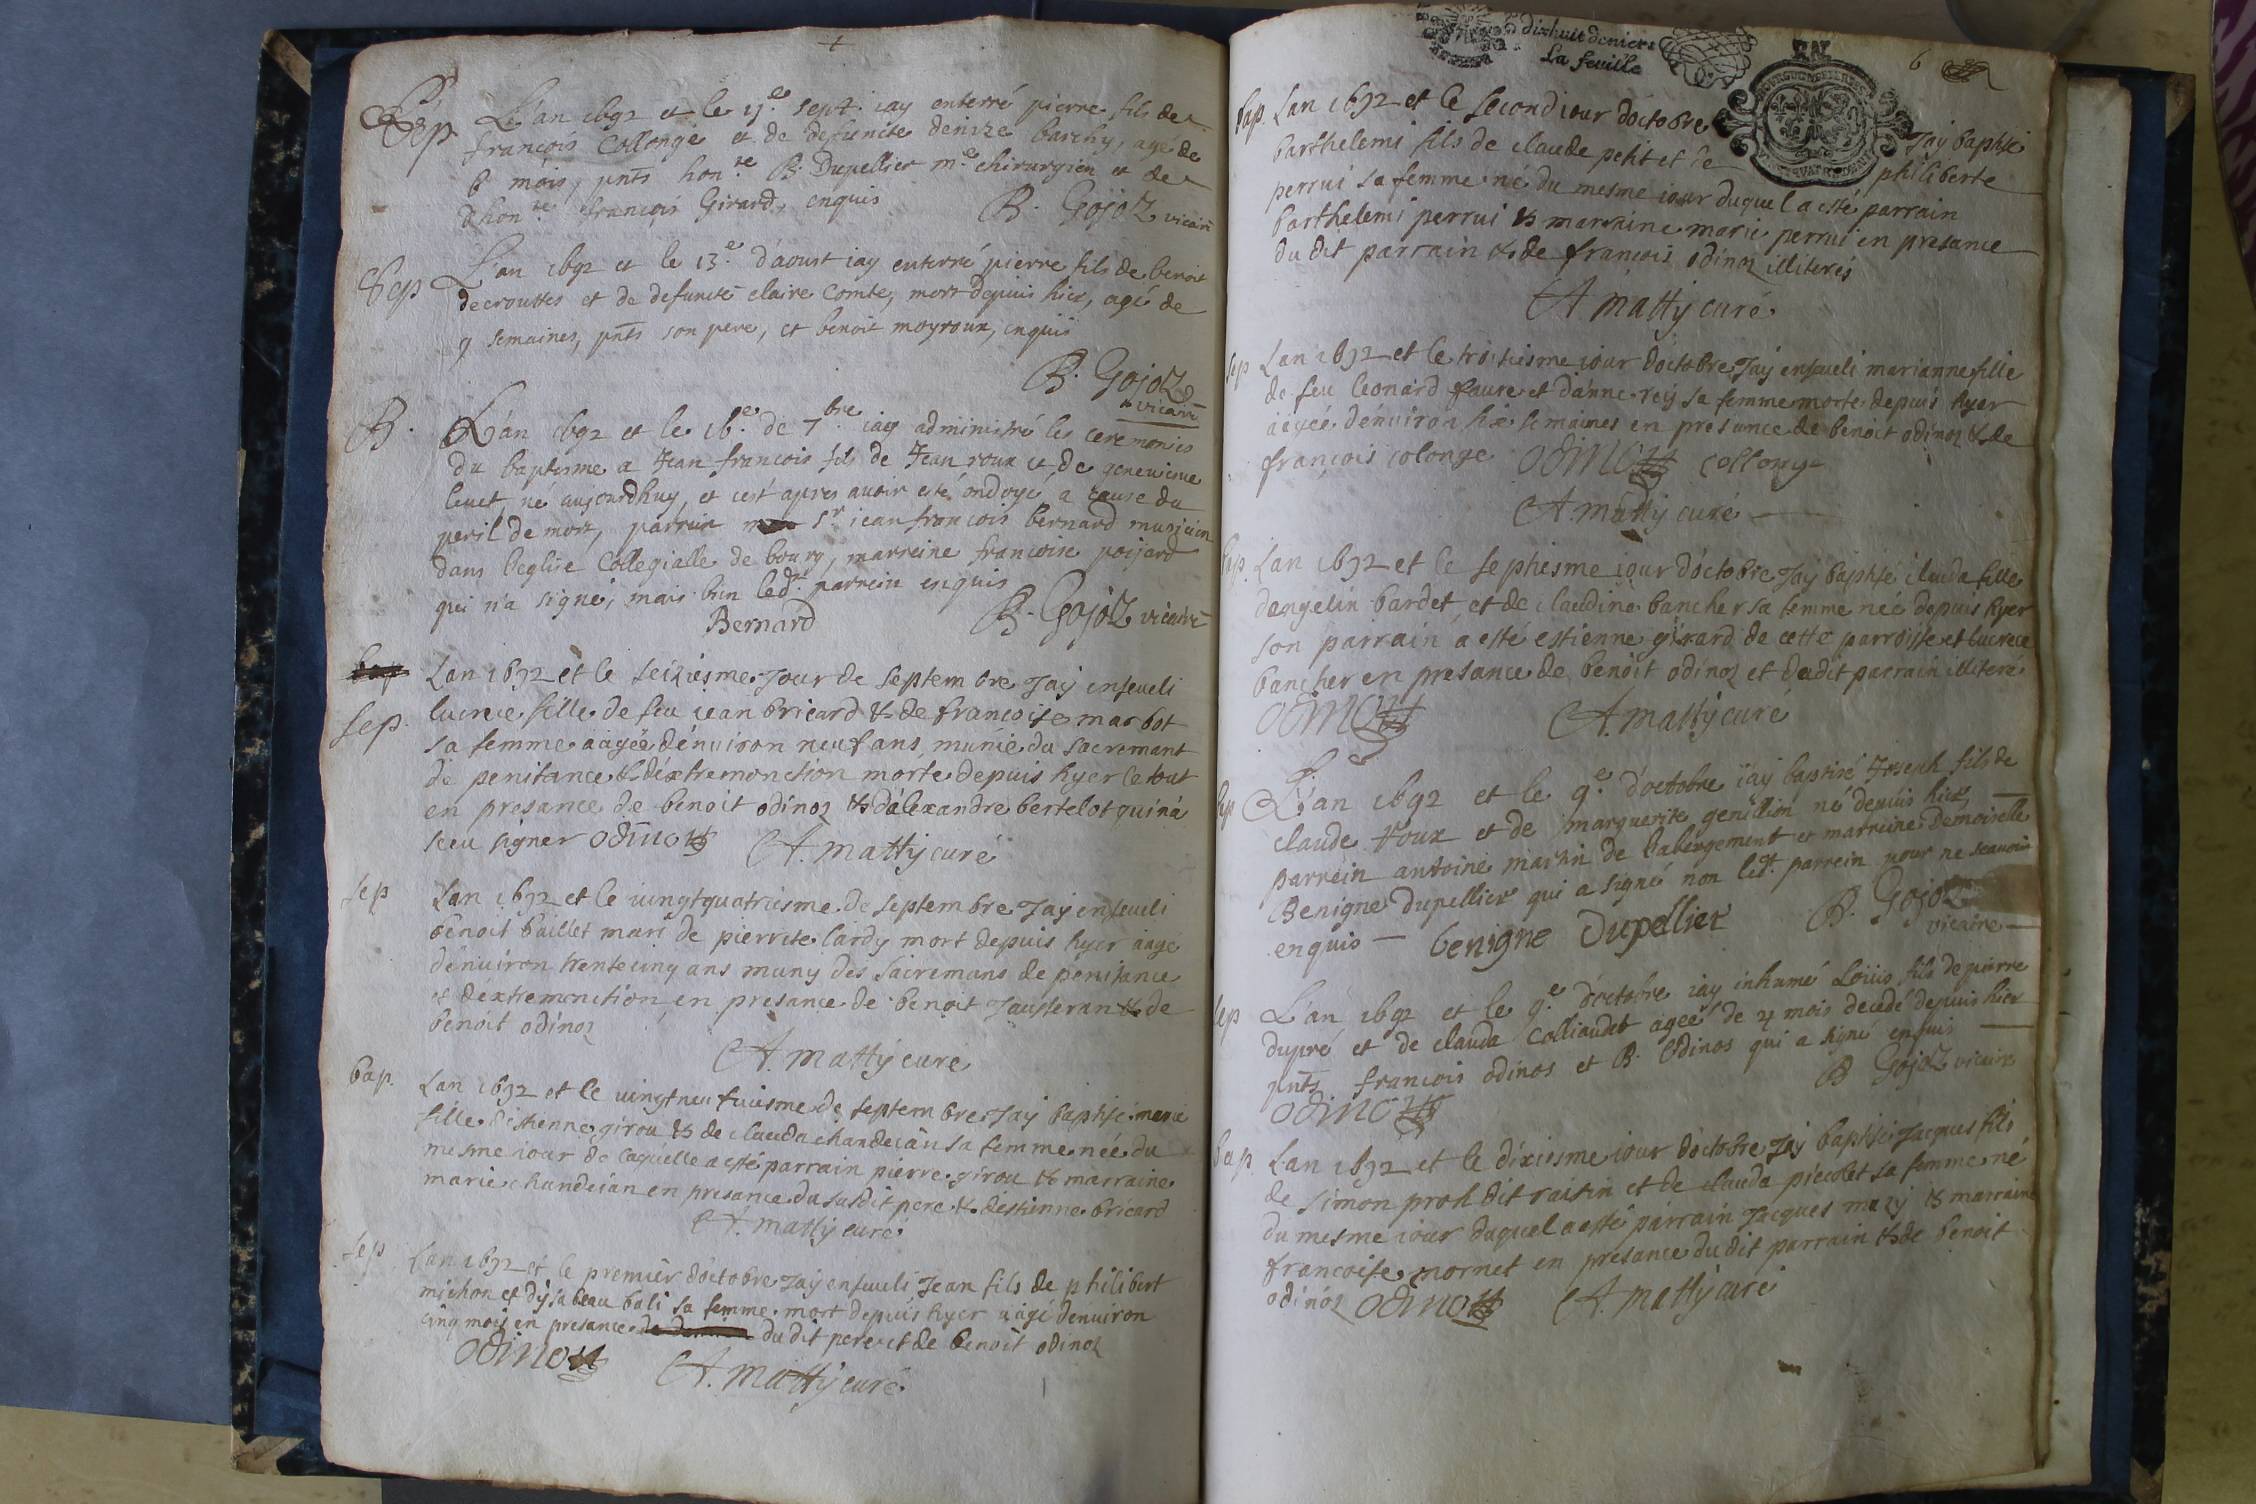 Sep L'an 1692 et le 15.e sept. iay enterré pierre fils de
francois Collonge et de defuncte denize barchy, agé de
6 mois, pnts hon.re B. Dupellier m.e chirurgien et de
hon.re francois Girard, enquis B. Gojoz vicaire
Sep L'an 1692 et le 13.e d'aoust iay enterré pierre fils de benoit
decrouttes et de defuncte claire Comte, mort depuis hier, agé de
9 semaines, pnts son pere, et benoit moyroux, enquis
B. Gojoz
vicaire
B. L'an 1692 et le 16.e de 7.bre iay administré les ceremonies
du baptesme a Jean francois fils de Jean roux et de genevieve
levet, né aujourdhuy, et cest apres avoir esté ondoyé a cause du
peril de mort, parrein Sr iean francois bernard musicien
dans leglise Collegialle de bourg, marreine francoise poijard
qui n'a signé, mais bien led.t parrein enquis
Bernard B. Gojoz vicaire
bap
Lan 1692 et le seiziesme Jour de septembre Jay enseveli
sep. lucrece fille de feu iean bricard & de francoise marbot
sa femme aagée dénviron neuf ans munie du sacremant
de penitance & déxtremonction morte depuis hyer le tout
en presance de benoit odinoz & dálexandre bertelot qui ná
sceu signer odinoz A. mattÿ curé
sep Lan 1692 et le vingtquatriesme de septembre Jay enseveli
benoit baillet mari de pierrete lardy mort depuis hyer aagé
dénviron trentecinq ans muny des sacremans de penitance
et déxtremonction en presance de benoit Jausseran & de
benoit odinoz
A. mattÿ curé
bap. Lan 1692 et le vingtneufviesme de septembre Jay baptisé marie
fille déstienne girou & de clauda chandeian sa femme née du
mesme iour de laquelle a esté parrain pierre girou & marraine
marie chandeian en presance du susdit pere & déstienne bricard
A. mattÿ curé
sep Lan 1692 et le premier dóctobre Jay enseveli Jean fils de philibert
michon et dÿsabeau bali sa femme mort depuis hyer aagé dénviron
cinq mois en presance du dit pere et de benoit odinoz
odinoz A. mattÿ curé
dixhuit deniers
La feuille
6
bap. Lan 1692 et le second iour dóctobre Jay baptisé
barthelemi fils de claude petit et de philiberte
perrui sa femme né du mesme iour duquel a esté parrain
barthelemi perrui & marraine marie perrui en presance
du dit parrain & de francois odinoz illiterés
A mattÿ curé
sep Lan 1692 et le troisiesme iour dóctobre Jay enseveli marianne fille
de feu leonard faure et dánne reÿ sa femme morte depuis hyer
aagée dénviron six semaines en presance de benoit odinoz & de
francois colonge odinoz collonge
A. mattÿ curé
bap. Lan 1692 et le septiesme iour dóctobre Jaÿ baptisé clauda fille
dangelin bardet et de claudine bancher sa femme née depuis hyer
son parrain a esté estienne girard de cette parroisse et lucrece
bancher en presance de benoit odinoz et dudit parrain illiteré
odinoz A. mattÿ curé
bap L'an 1692 et le 9.e d'octobre iay baptisé Joseph fils de
claude roux et de marguerite genillion né depuis hier,
parrein antoine martin de labergement et marreine Demoiselle
Benigne Dupellier qui a signé non led.t parrein pour ne scavoir
enquis benigne Dupellier B. Gojoz
vicaire
sep L'an 1692 et le 9.e d'octobre iay inhumé Loüis fils de pierre
dupré et de clauda Colliaudet ageé de 4 mois decedé depuis hier
pnts francois odinos et B. Odinos qui a signé enquis
odinoz B Gojoz vicaire
bap. Lan 1692 et le dixiesme iour dóctobre Jaÿ baptisé Jacques fils
de simon prost dit raisin et de clauda piecolet sa femme né
du mesme iour duquel a esté parrain Jacques mazÿ & marraine
francoise mornet en presance du dit parrain & de benoit
odinoz odinoz A. mattÿ curé